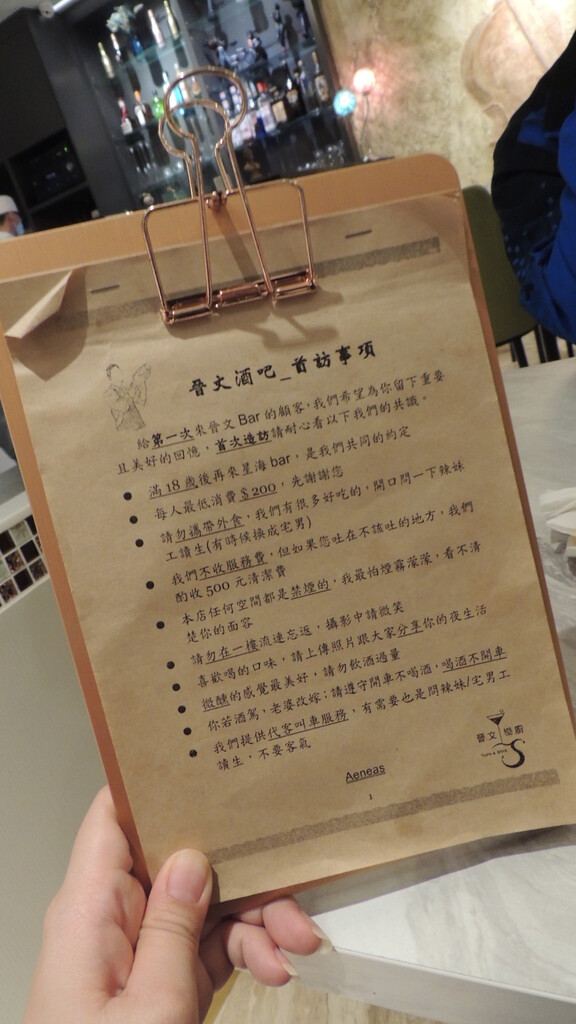 晉文酒吧_首訪事項
給第一次來晉文 Bar 的顧客，我們希望為你留下重要
且美好的回憶，首次造訪請耐心看以下我們的共識。
● 滿 18 歲後再來星海 bar，是我們共同的約定
● 每人最低消費＄200，先謝謝您
● 請勿攜帶外食，我們有很多好吃的，開口問一下辣妹
工讀生(有時候換成宅男)
● 我們不收服務費，但如果您吐在不該吐的地方，我們
酌收 500 元清潔費
● 本店任何空間都是禁煙的，我最怕煙霧濛濛，看不清
楚你的面容
● 請勿在一樓流連忘返，攝影中請微笑
● 喜歡喝的口味，請上傳照片跟大家分享你的夜生活
● 微醺的感覺最美好，請勿飲酒過量
● 你若酒駕，老婆改嫁；請遵守開車不喝酒，喝酒不開車
● 我們提供代客叫車服務，有需要也是問辣妹/宅男工
請生，不要客氣
晉文 樂廚
Aeneas
1